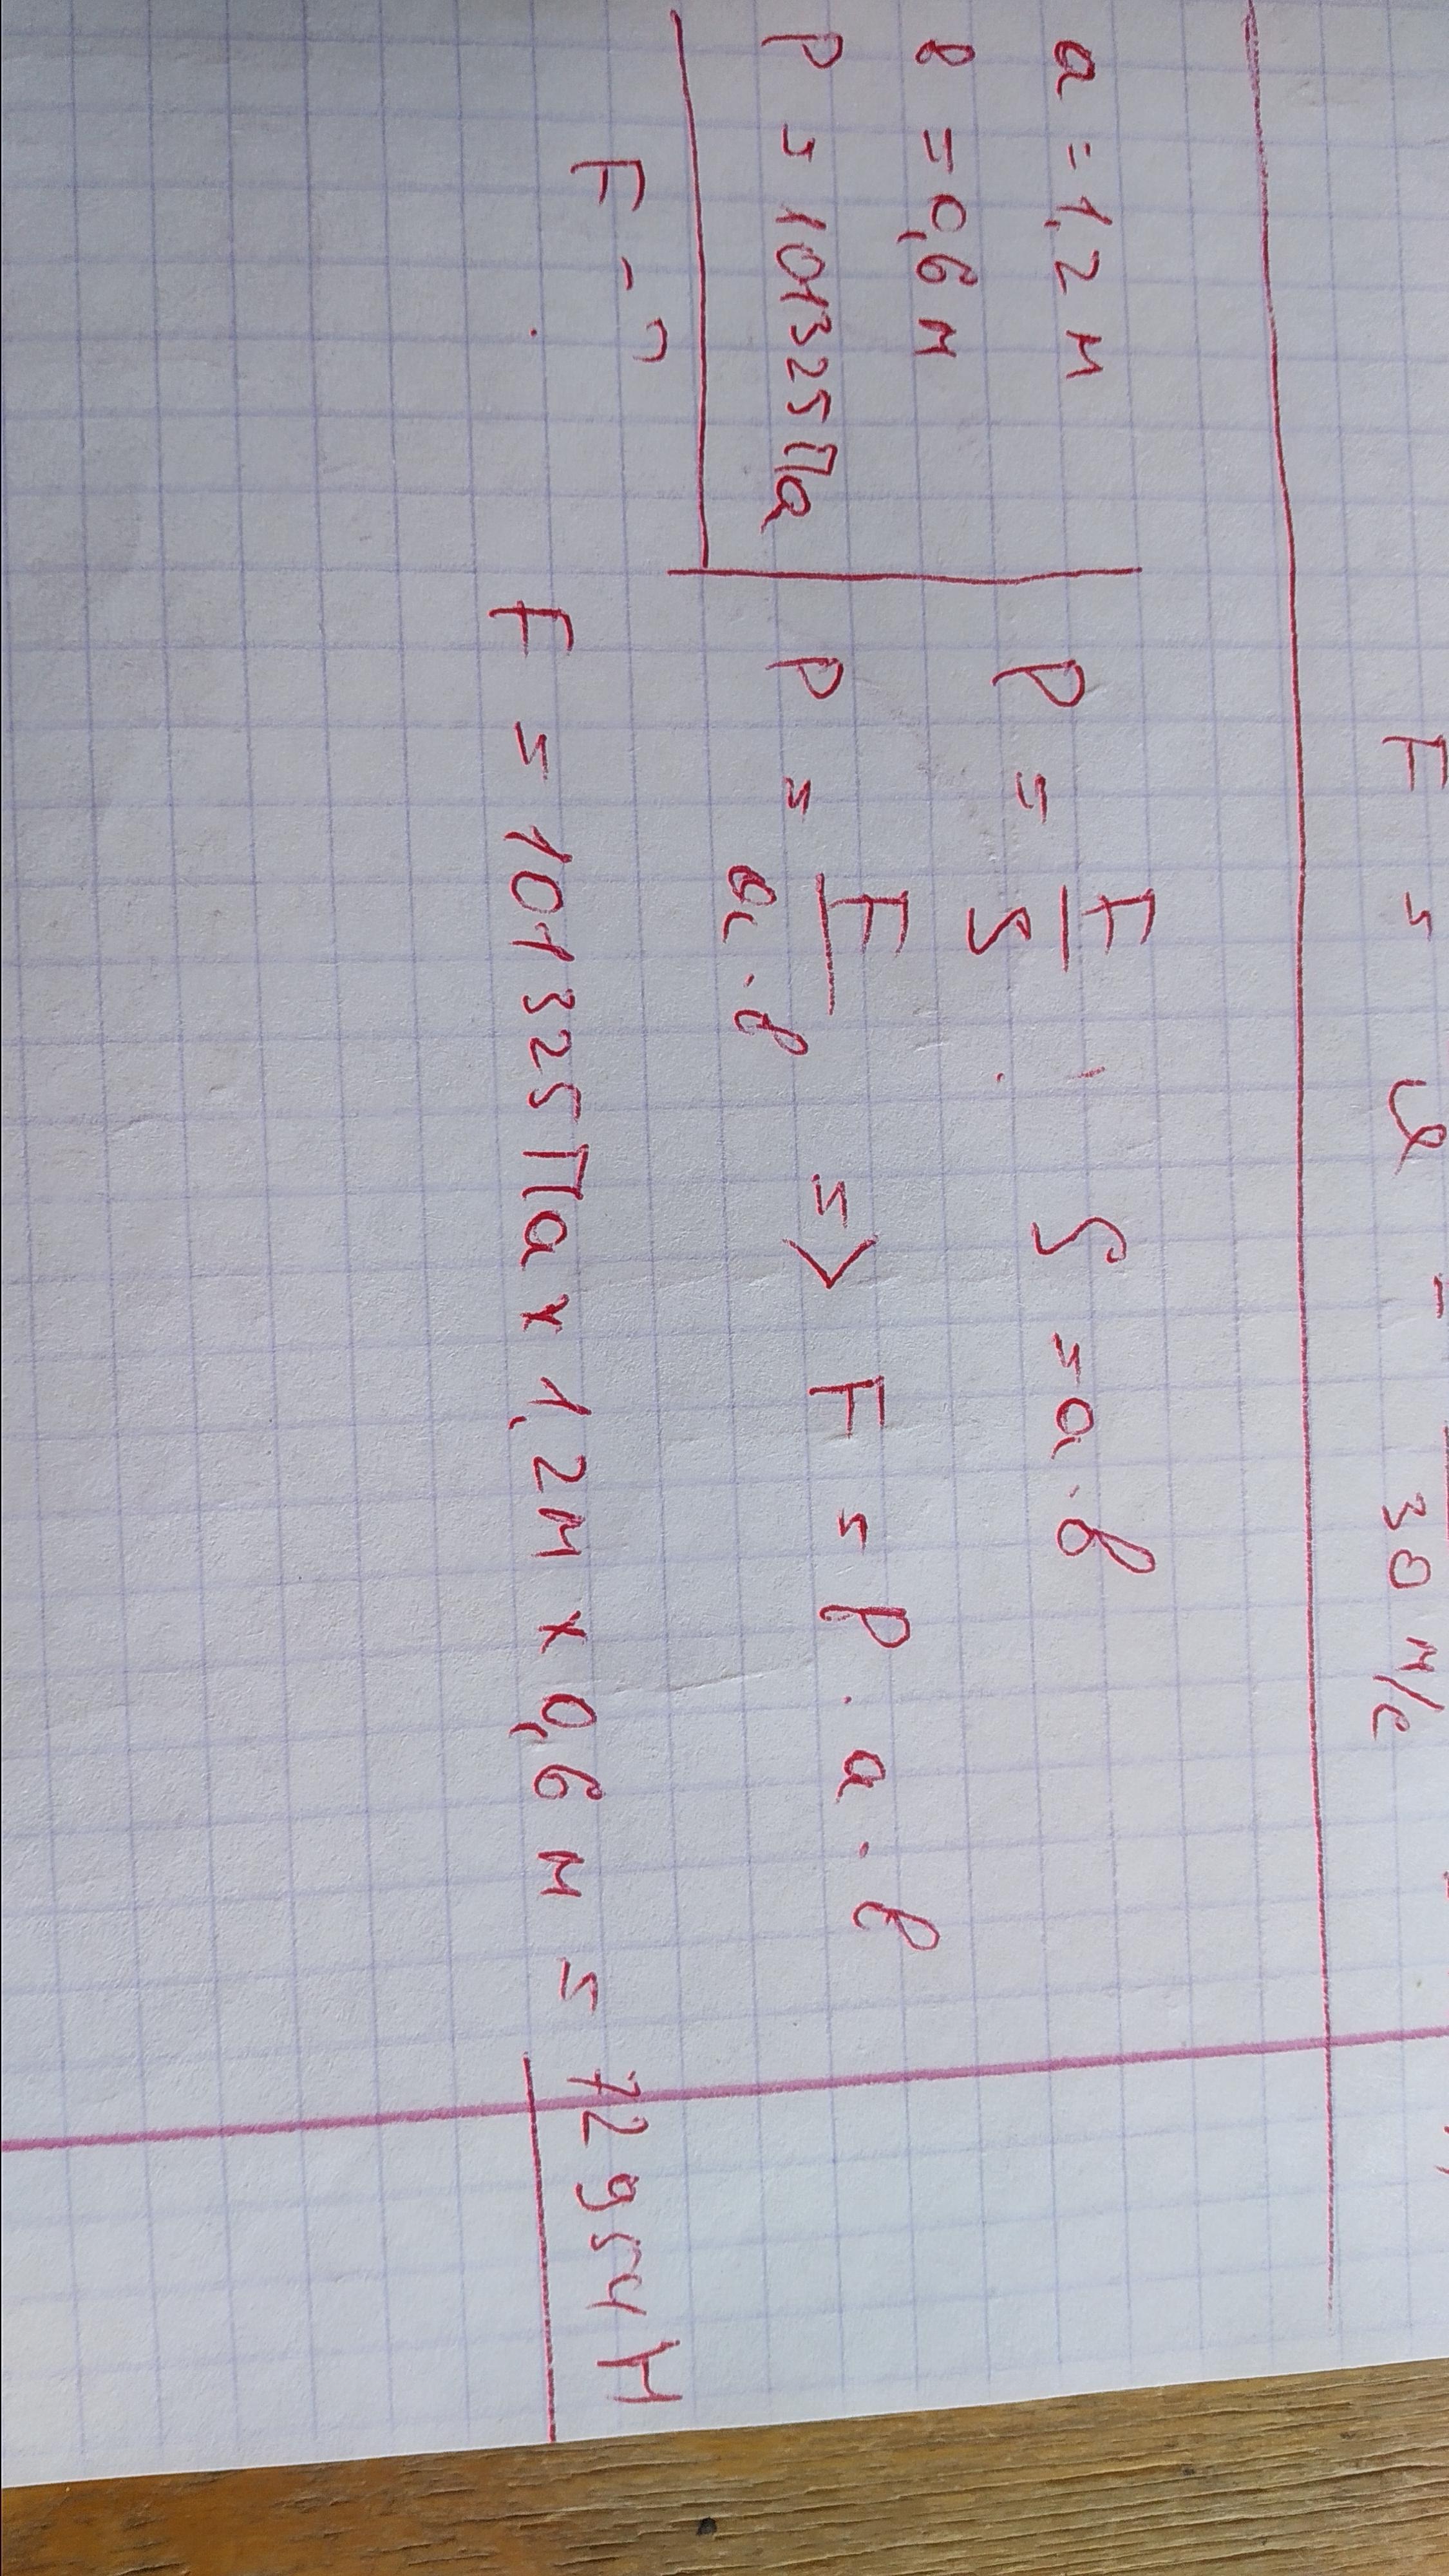 F = U = 30 м/с
a = 1,2 м
в = 0,6 м
P = 101325 Па
F - ?
P = F/S S = a · в
P = F/a · в => F = P · a · в
F = 101325 Па x 1,2 м x 0,6 м = 72954 Н